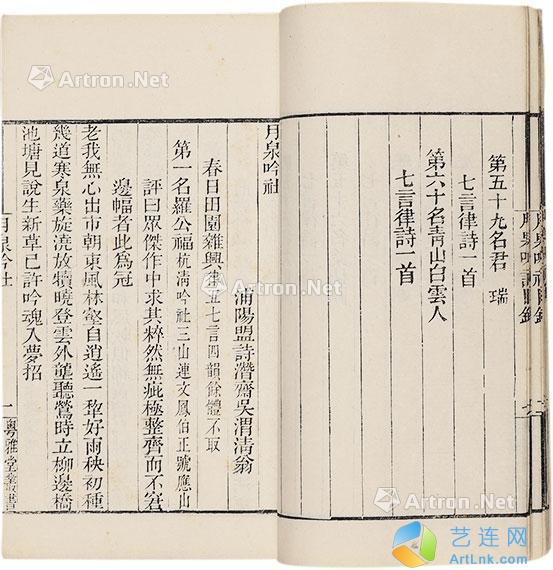 第五十九名君 瑞
七言律詩一首
第六十名靑山白雲人
七言律詩一首
月泉吟社
浦陽盟詩潛齋吳渭淸翁
春日田園雜興律五七言四韻餘體不取
第一名羅公福杭淸吟社三山連文鳳伯正號應山
評曰眾傑作中求其粹然無疵極整齊而不窘
邊幅者此爲冠
老我無心出市朝東風林壑自逍遙一犂好雨秧初種
幾道寒泉藥旋澆放犢曉登雲外壟聽鶯時立柳邊橋
池塘見說生新草已許吟魂入夢招
月泉吟社
一
粤雅堂叢書
Artron.Net
Artron.Net
Artron.Net
Artron.Net
艺连网
ArtLnk.com